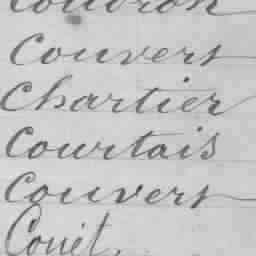 Couvert
Chartier
Courtais
Couvert
Couët